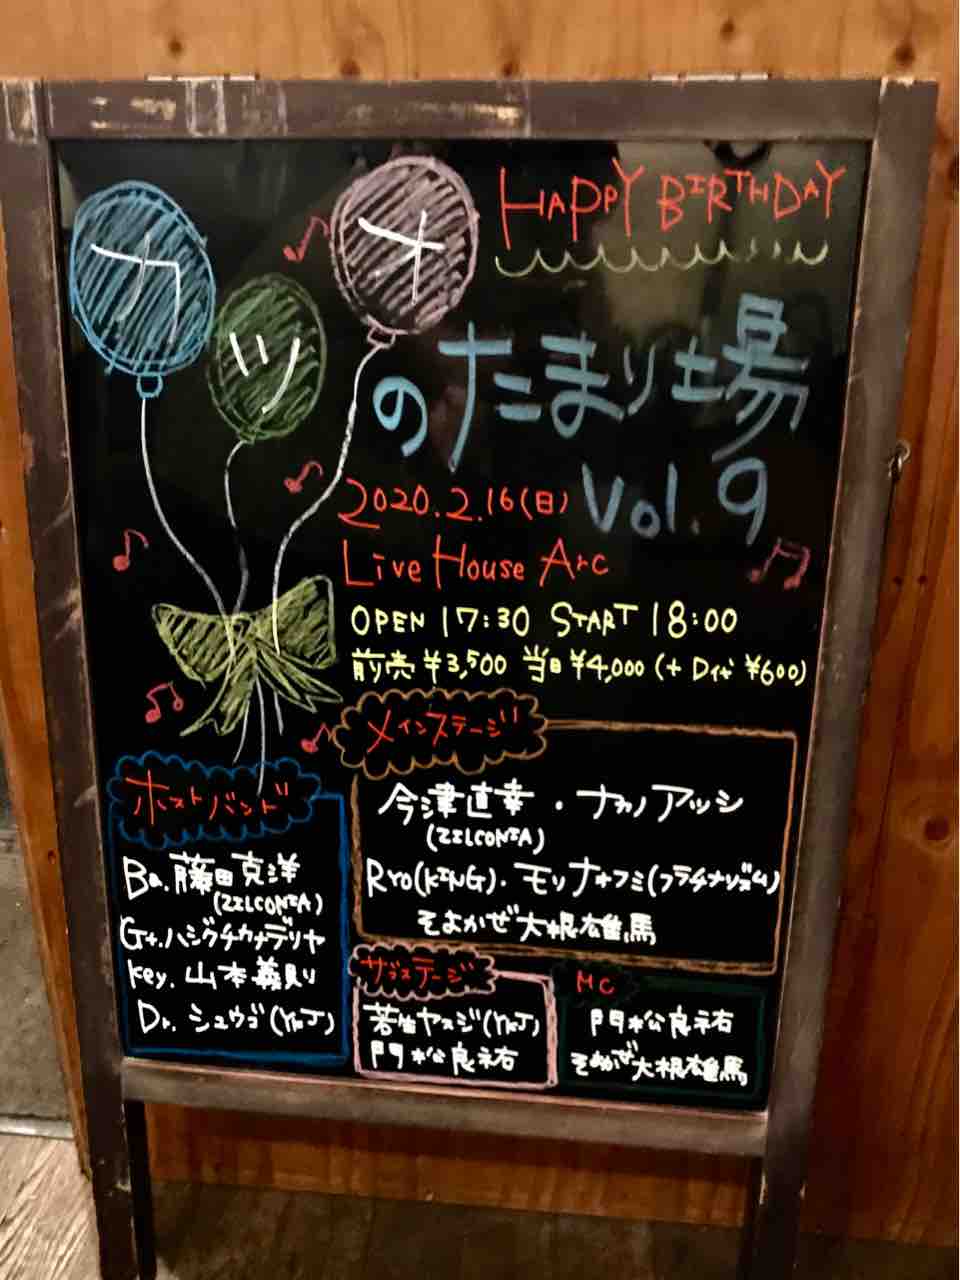 HAPPY BIRTHDAY
カツオ
のたまり場
Vol.9
2020.2.16(日)
Live House Arc
OPEN 17:30 START 18:00
前売 ¥3,500 当日 ¥4,000 (+ Dイせ ¥600)
メインステージ
今津直幸・ナカノアツシ
(ZILCONIA)
Ryo(KING)・モリナオフミ(プラチナリズム)
そよかぜ大根雄馬
ホストバンド
Ba.藤田克洋
(ZILCONIA)
Gt.ハシグチカナデリヤ
Key.山本義則
Dr.シュウゴ(YKJ)
サブステージ
若生ヤスジ(YKJ)
門松良祐
MC
門松良祐
そよかぜ大根雄馬